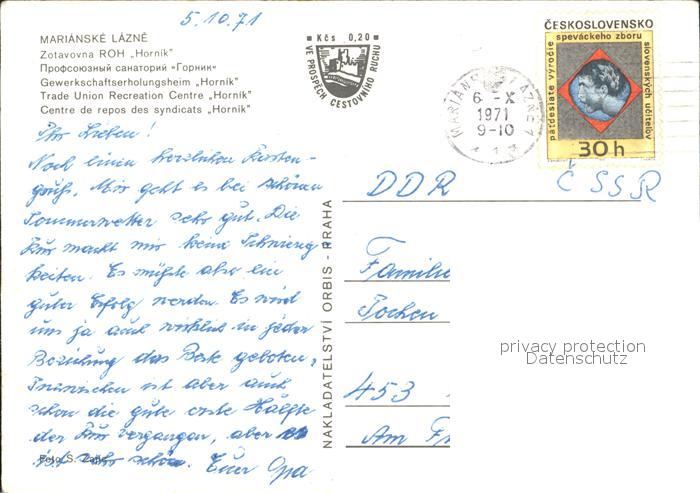 5.10.71
MARIÁNSKÉ LÁZNĚ
Zotavovna ROH „Horník"
Профсоюзный санаторий «Горник»
Gewerkschaftserholungsheim „Horník"
Trade Union Recreation Centre „Horník"
Centre de repos des syndicats „Horník"
Kčs 0,20
VE PROSPĚCH CESTOVNÍHO RUCHU
ČESKOSLOVENSKO
päťdesiate výročie
speváckeho zboru
slovenských učiteľov
30 h
MARIÁNSKÉ LÁZNĚ 1
6.-X
1971
9-10
Ihr Lieben!
Noch einen herzlichen Karten-
gruß. Mir geht es bei schönem
Sommerwetter sehr gut. Die
Kur macht mir keine Schwierig
keiten. Es müßte also ein
guter Erfolg werden. Es wird
uns ja auch wirklich in jeder
Beziehung das Beste geboten.
Inzwischen ist aber auch
schon die gute erste Hälfte
der Kur vergangen, aber
Euer Opa
Foto S.
NAKLADATELSTVÍ ORBIS - PRAHA
DDR
ČSSR
Familie
Jochen
453
Am
privacy protection
Datenschutz